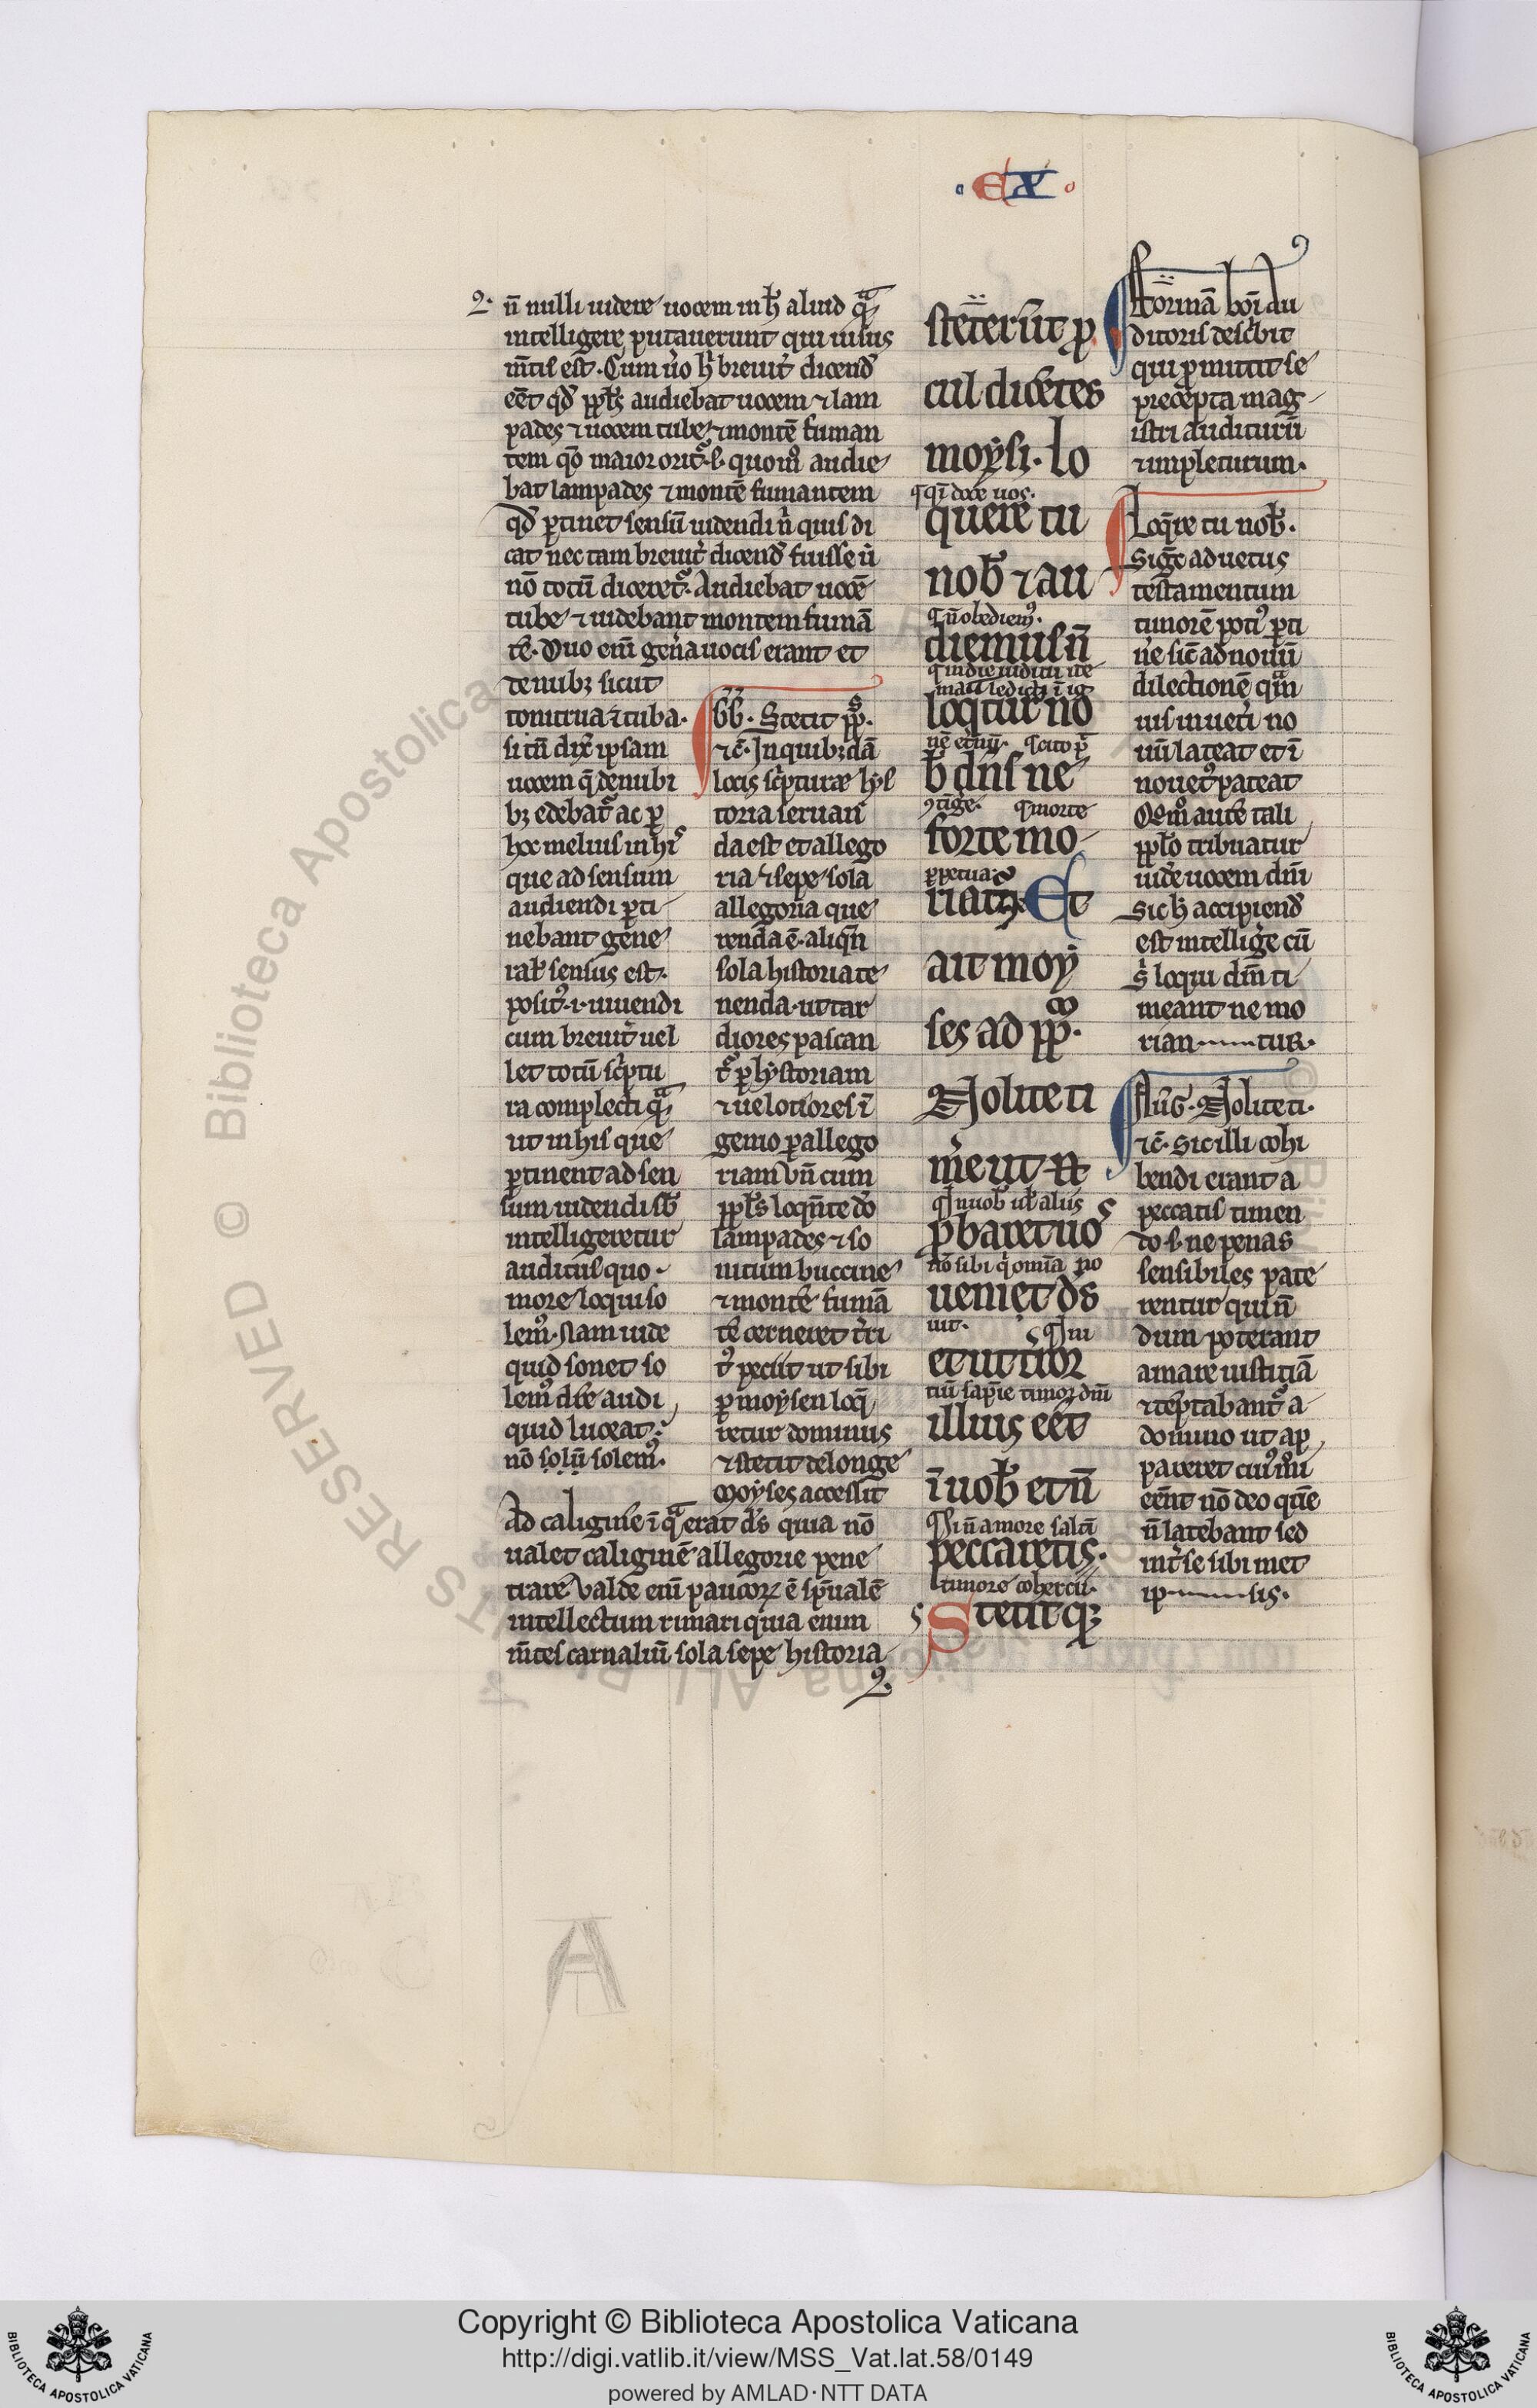 EX
n̄ nulli uidere uocem in hͦ aliud qͣ
intelligere putauerunt qui uisus
m̄tis est. Cum ūo hͦ breuiť dicend̄
eēt qd̄ ppl̄s audiebat uocem ⁊ lam
pades ⁊ uocem tube ⁊ montē fuman
tem
bat lampades ⁊ montē fumantem
qd̄ ꝑtinet sensū uidendi n̄ quis di
cat nec tam breuiť dicend̄ fuisse ū
nō totū diceret᷑. Audiebat uocē
tube ⁊ uidebant montem fumā
tē. Duo eni᷑ geňa uocis erant et
de nubꝫ sicut
tonitrua ⁊ tuba.
si tn̄ dix̄ ipsam
uocem q̄ de nubi
bꝫ edebat᷑ ac ꝑ
hoc melius in hiˢ
que ad sensum
audiendi ꝑti
nebant gene
ral᷑ sensus est
positꝰ .i. uiuendi
cum breuiť uel
let totū sc̄ptu
ra complecti qͣ
ut in his que
ꝑtinent ad sen
sum uidendi sb̄
intelligeretur
auditus quo
more loqui so
lemꝰ. Nam uide
quid sonet so
lemꝰ dīce audi
quid luceat
nō solū solemꝰ.
GG. Stetit ppˢ.
⁊c̄. In quibꝫdā
locis sc̄pturæ hys
toria seruan
da est et allego
ria ⁊ sepe sola
allegoria que
renda ē. aliqn̄
sola historia te
nenda. ut tar
diores pascan
t᷑ ꝑ hystoriam
⁊ uelotiores ī
genio ꝑ allego
riam Vn̄ cum
ppl̄s loqn̄te dō
lampades ⁊ so
nitum buccine
⁊ montē fumā
tē cerneret t̄ri
tꝰ peciit ut sibi
ꝑ moysen loq̄
retur dominus
⁊ stetit de longe
Moyses accessit
Ad caliginē ī qͣ erat d̄s quia nō
ualet caliginē allegorie pene
trare Valde eni᷑ paucoꝝ ē sp̄ualē
intellectum rimari quia enim
m̄tes carnaliū sola sepe historia
steterūt ꝓ
cul dicētes
moẏsi. lo
¶ qͥ doce uos.
quere tu
nob̄ ⁊ au
¶ n̄ obediemꝰ.
diemus n̄
¶ in die iudicii ite
maledicti ī ig
loqtur nō
nē et̄nū. ¶ cito p̄
b̄ dn̄s ne
¶ morte
forte mo
ꝑpetua
riam᷑. Et
ait moẏ
ses ad ppm̄.
Nolite ti
mēe ut .n̄.
¶ In uob̄ ul᷑ aliis
ꝓbaret uoˢ
nō sibi qi omīa no
uenit d̄s
uit. ¶ Ini
et ut timor
tiū sapīe timor dn̄i
illius eēt
ī uob̄ et n̄
¶ Si n̄ amore saltī
peccaretis.
timore coherciti.
Stetit qꝫ
Formā boni au
ditoris desc̄bit
qui ꝓmittit se
precepta mag
istri auditurū
⁊ impleturum.
Loqͤre tu nob̄.
Sig͛e ad uetus
testamentum
timorē potiꝰ ꝑti
ňe sic̄ ad nouū
dilectionē qm̄
uis in ueťi no
uū lateat et ī
nouo uetꝰ pateat
Qͦm̄ autē tali
ppl̄o tribuatur
uidē uocem dn̄i
Sic hͦ accipiend̄
est intellig͛e cū
s̄ loqui dm̄ ti
meant ne mo
rian----tur.
Aug͛. Nolite ti.
⁊c̄. Sic illi cohi
bendi erant a
peccatis timen
do .s. ne penas
sensibiles pate
rentur qui n̄
dum poterant
amare iustitiā
⁊ tēptabant᷑ a
domino ut ap
pareret cuiꝰmōi
eēnt nō deo quē
n̄ latebant sed
inť se sibimet
ip----sis.
Copyright © Biblioteca Apostolica Vaticana
http://digi.vatlib.it/view/MSS_Vat.lat.58/0149
powered by AMLAD·NTT DATA
BIBLIOTECA APOSTOLICA VATICANA
BIBLIOTECA APOSTOLICA VATICANA